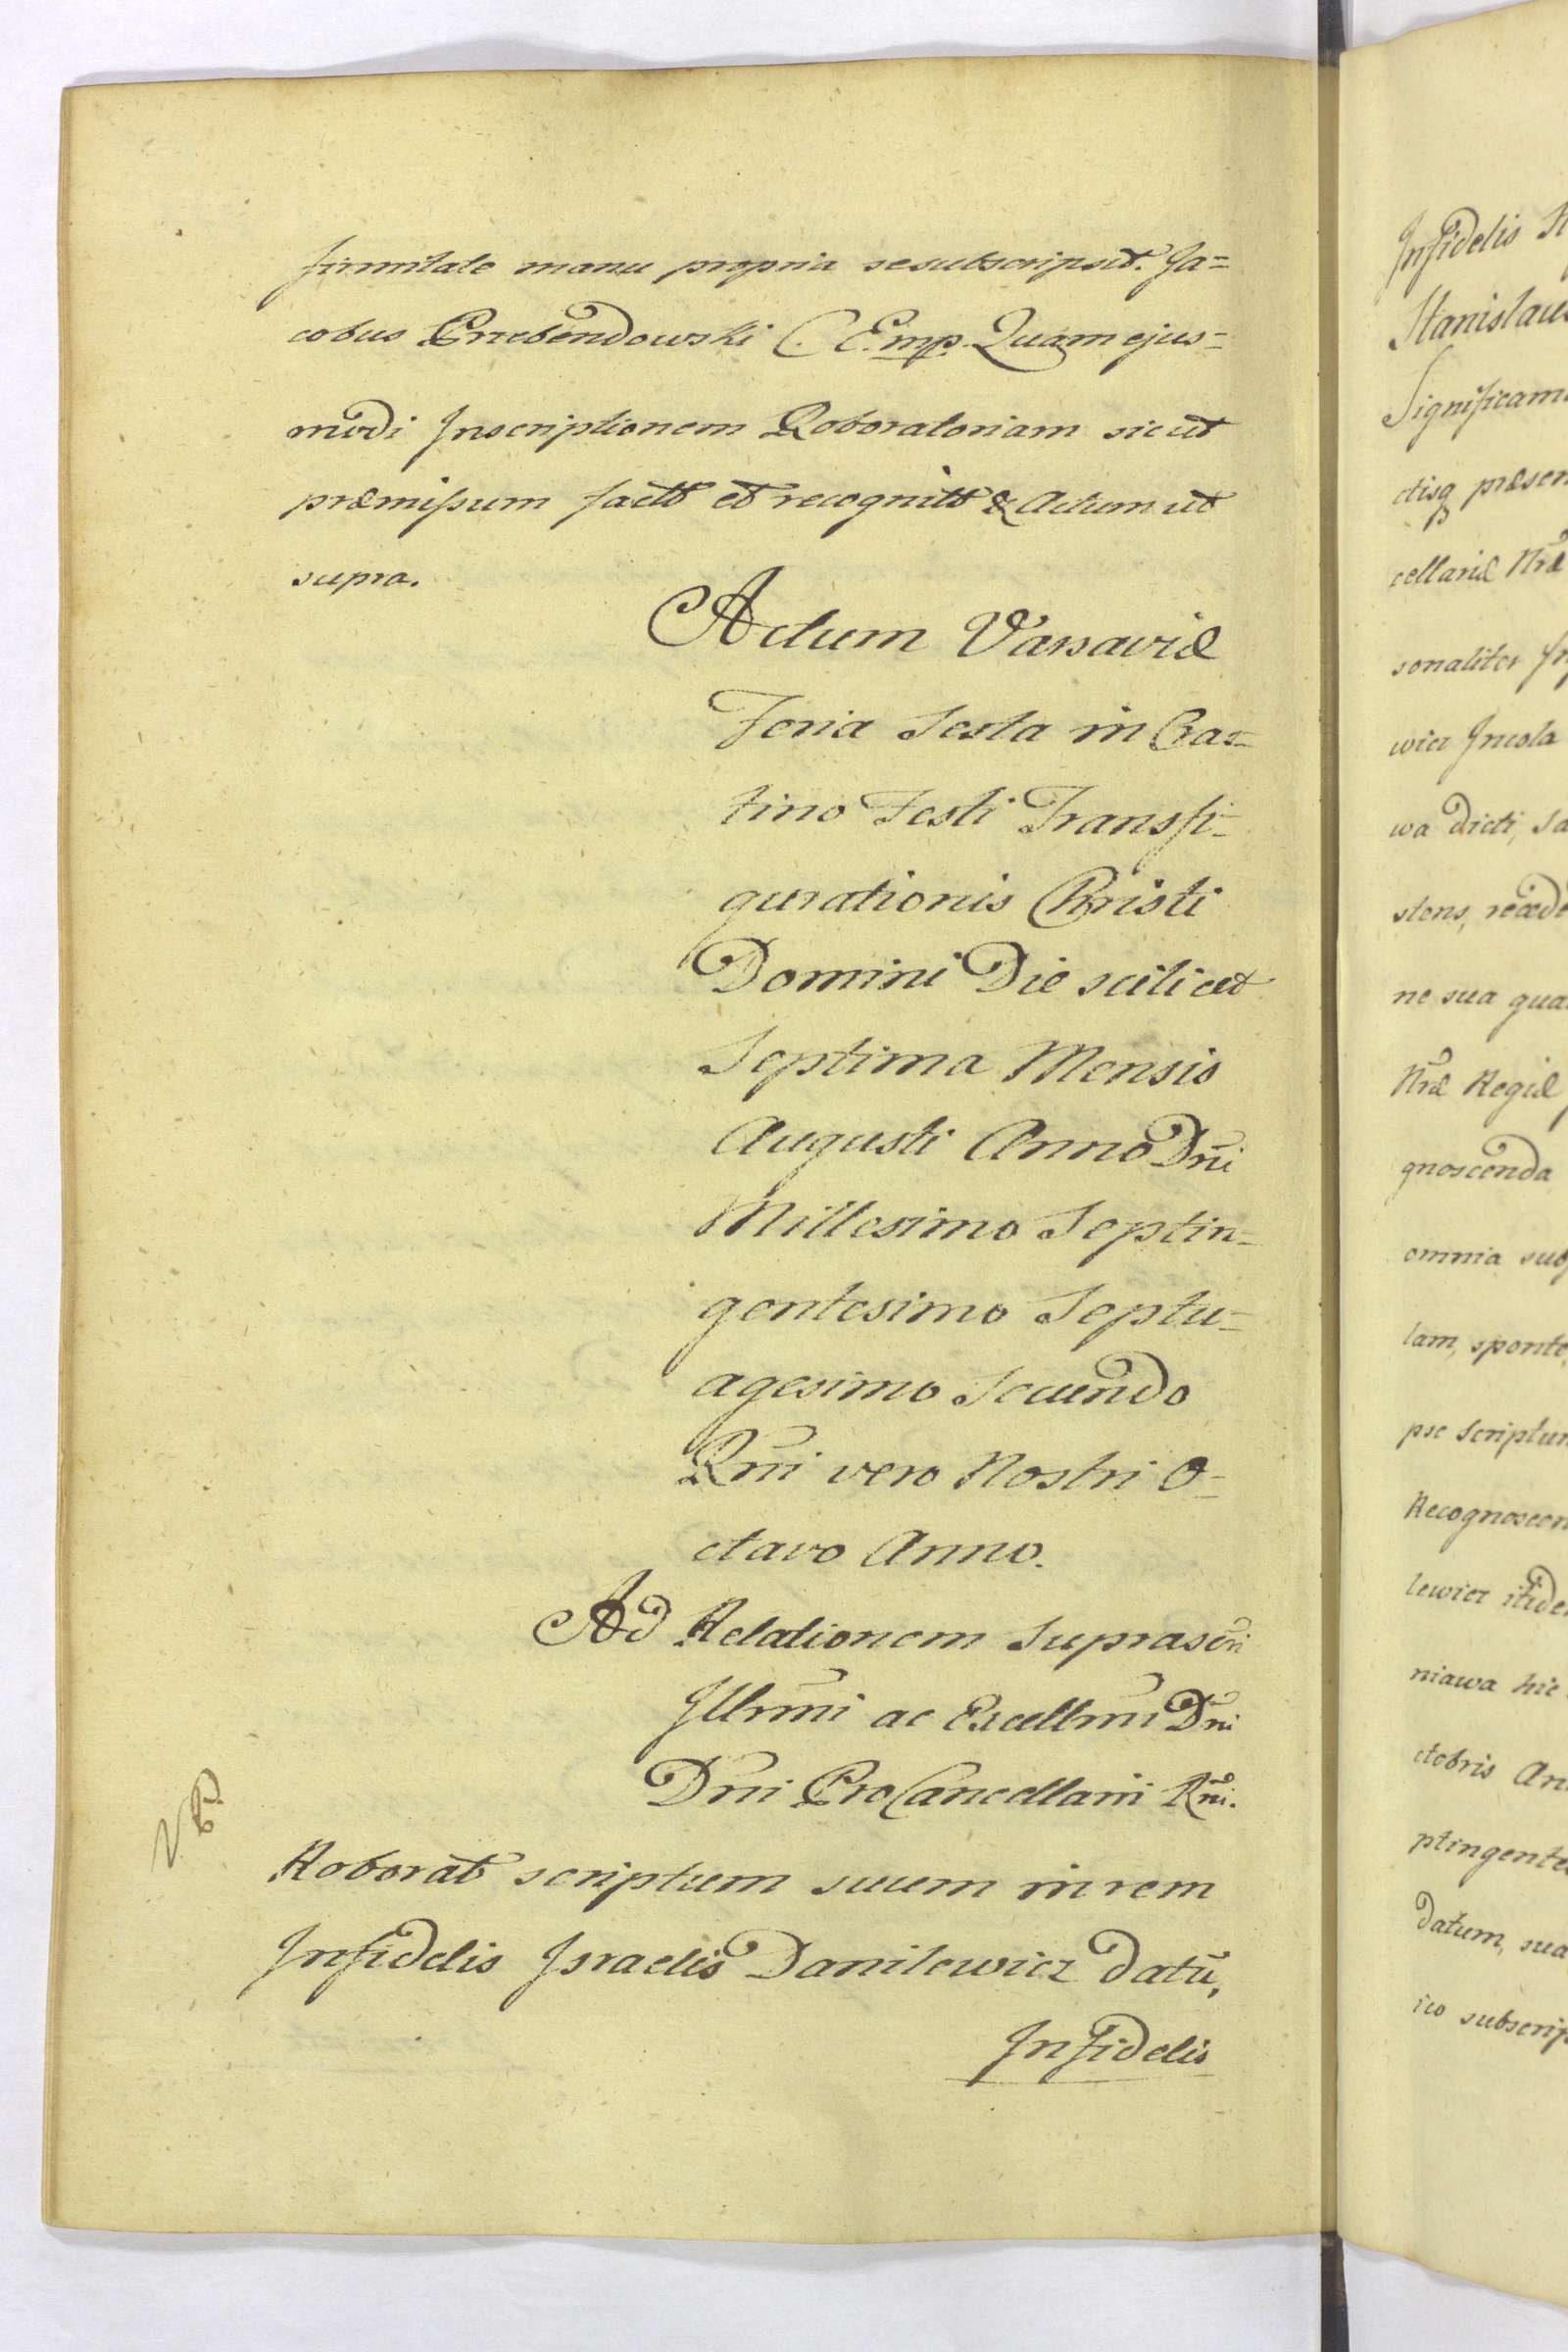 firmitate manu propria sesubscripsit. Ja=
cobus Przebendowski C. E. mp. Quam ejus=
modi Inscriptionem Roboratoriam sicut
præmissum factt et recognitt & Actum ut
supra.
Actum Varsaviæ
Feria Sexta in Cras=
tino Festi Transfi=
gurationis Christi
Domini Die scilicet
Septima Mensis
Augusti Anno Dni
Millesimo Septin=
gentesimo Septu=
agesimo Secundo
Rni vero Nostri O=
ctavo Anno.
Ad Relationem Suprascri
Illrmi ac Excellmi Dni
Dni ProCancellarii Rni.
Roborat scriptum suum in rem
Infidelis Israelis Danilewicz datū,
Infidelis
Infidelis
Stanislaus
Significam
ctisq præsen
cellariæ Nræ
sonaliter
wicz Incola
wa dicti, sa
stens, recede
ne sua qua
Nræ Regiæ
gnoscenda
omnia sub
lam, sponte,
pse scriptum
Recognoscen
lewicz itide
niawa hic
ctobris An
ptingente
datum, sua
ico subscrip